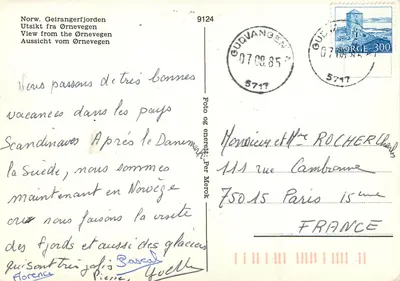 Norw. Geirangerfjorden
Utsikt fra Ørnevegen
View from the Ørnevegen
Aussicht vom Ørnevegen
9124
Foto og enerett: Per Merok
Nous passons de très bonnes
vacances dans les pays
Scandinaves Après le Danemark
la Suède, nous sommes
maintenant en Norvège
où nous faisons la visite
des fjords et aussi des glaciers
qui sont très jolis
Pascal
Florence
Pierre
Yvette
GUDVANGEN
07 08 85
5717
NORGE 300
07 08 85
5717
Monsieur et Mme ROCHER
111 rue Cambronne
75015 Paris 15eme
FRANCE